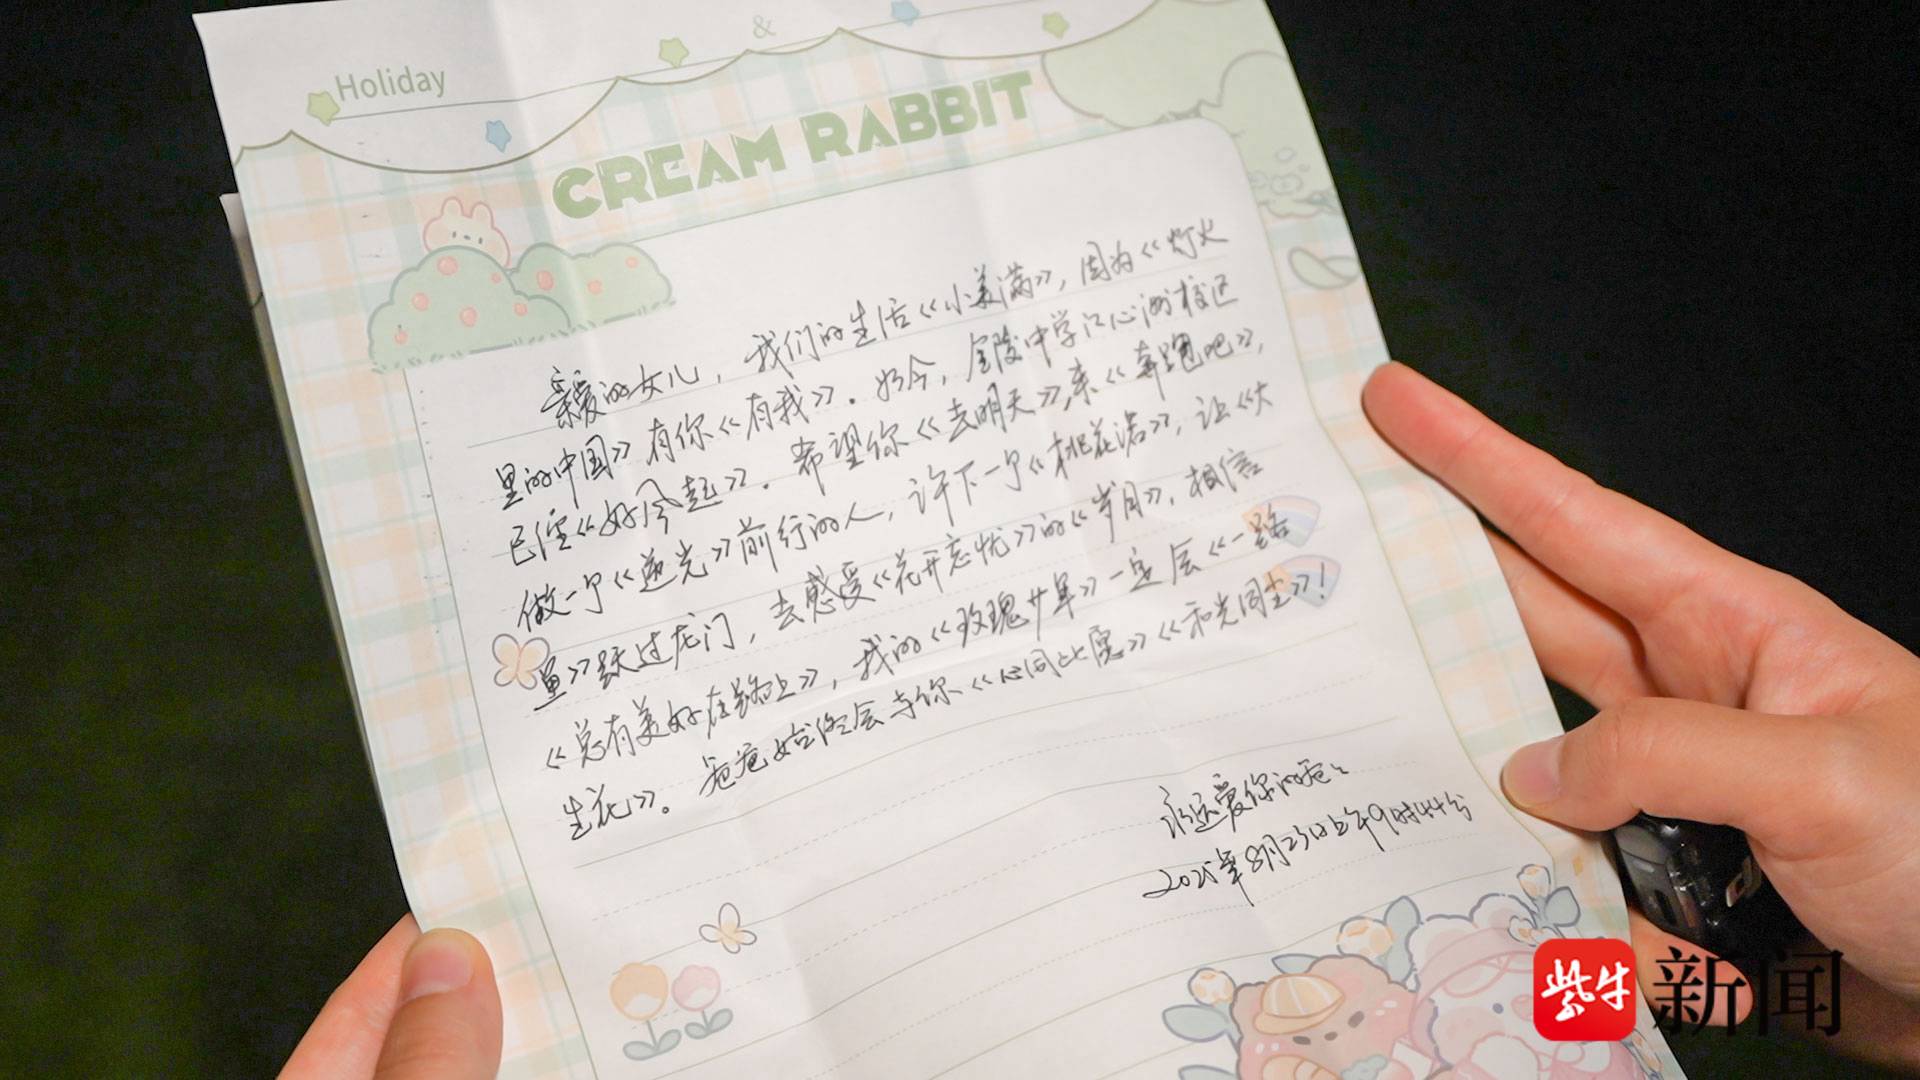 Holiday
&
CREAM RABBIT
亲爱的女儿，我们的生活《小美满》，因为《灯火
里的中国》有你《有我》。如今，金陵中学江心洲校区
已经《如今起》。希望你《去明天》，来《奔跑吧》，
做一个《逆光》前行的人，许下一个《桃花诺》，让《大
鱼》跃过龙门，去感受《花开忘忧》的《岁月》，相信
《总有美好在路上》，我的《玫瑰少年》一定会《一路
生花》。爸爸始终会与你《心同此愿》《和光同尘》！
永远爱你的爸爸
2025年8月23日上午9时44分
紫牛新闻